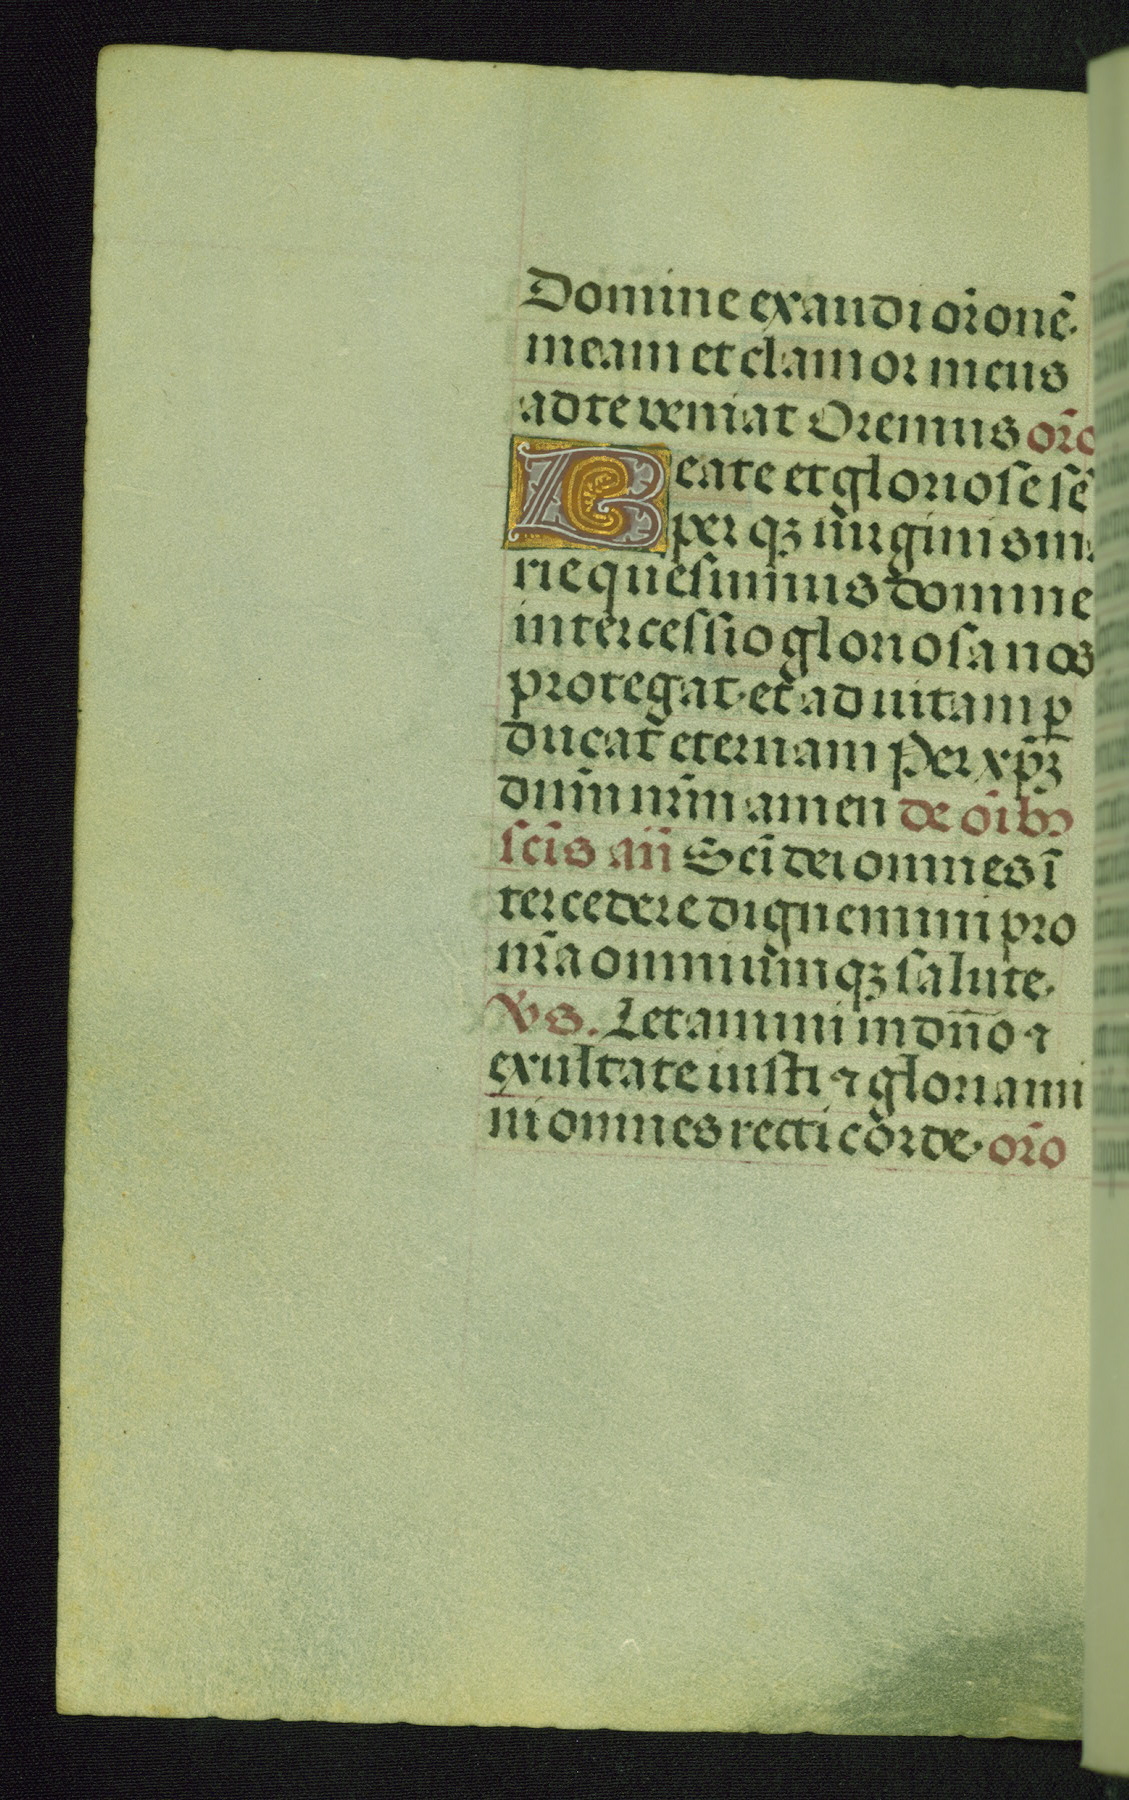 Domine exaudi or̄onē
meam et clamor meus
ad te veniat Oremus or̄o
Beate et gloriose sē
per qꝫ ūirginis ma
rie quesumus domine
intercessio gloriosa nos
protegat · et ad uitam ꝑ
ducat eternam Per xp̄ꝫ
dn̄m nr̄m amen de oībꝫ
scīs an̄ Scī dei omnes ī
tercedere dignemini pro
nr̄a omnium qꝫ salute ·
Vs. Letamini in dn̄o ⁊
exultate iusti ⁊ gloriami
ni omnes recti corde · or̄o